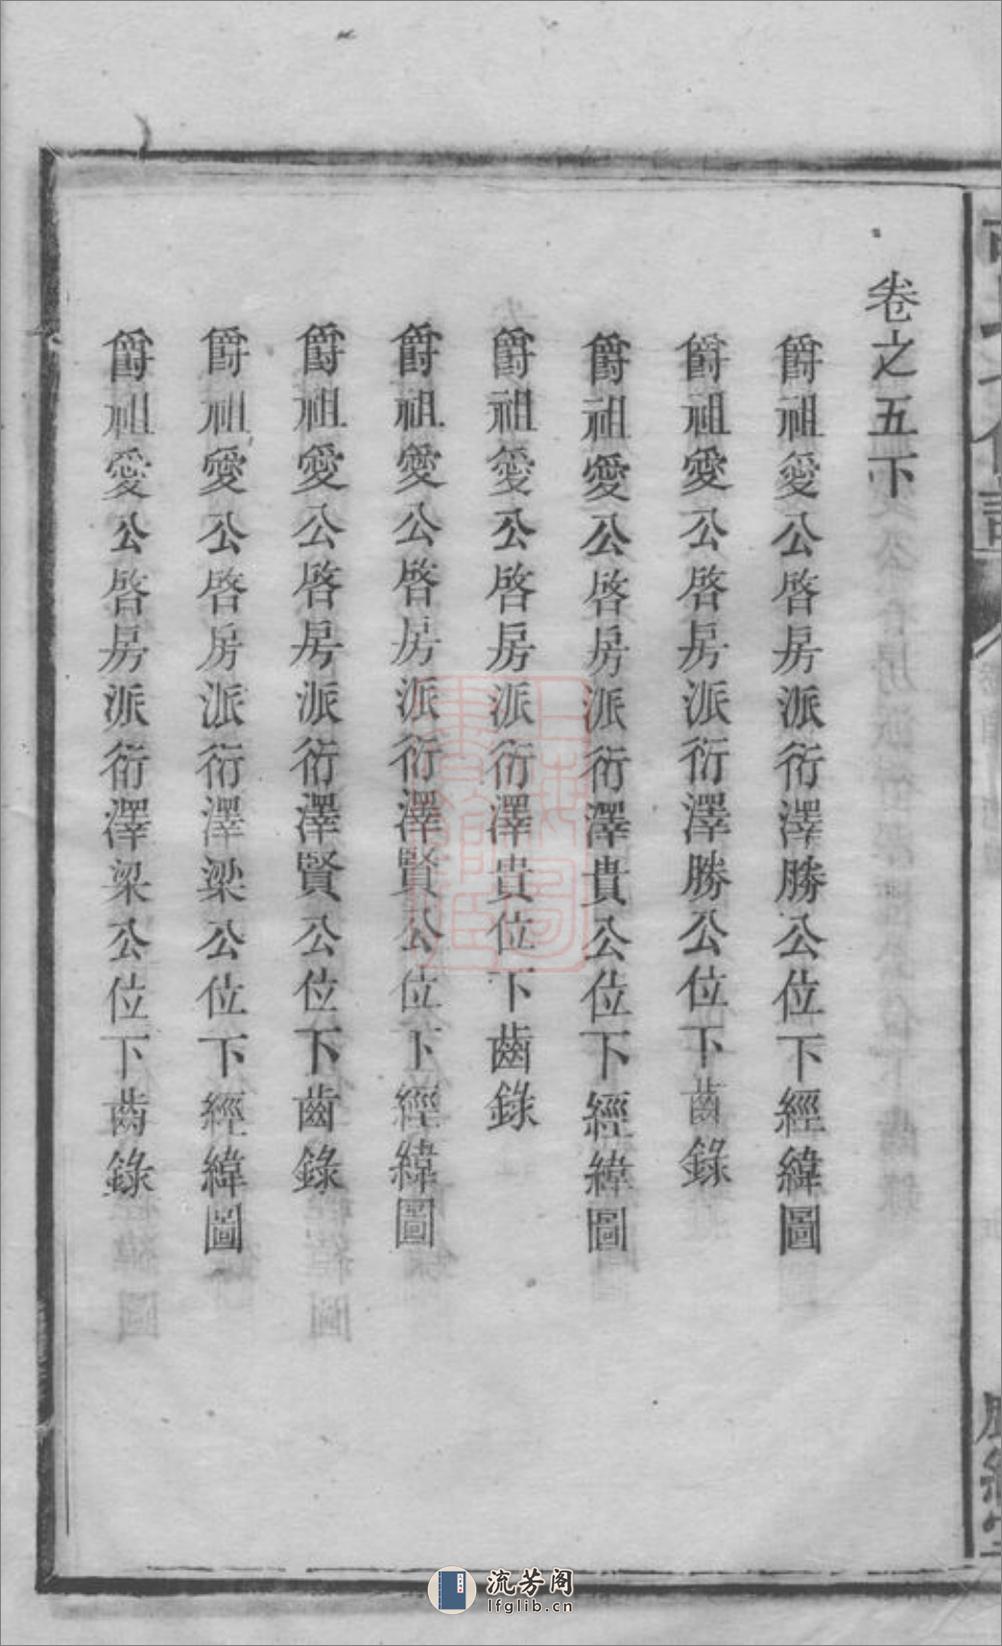 卷之五下
爵祖愛公啓房派衍澤勝公位下經緯圖
爵祖愛公啓房派衍澤勝公位下齒錄
爵祖愛公啓房派衍澤貴公位下經緯圖
爵祖愛公啓房派衍澤貴位下齒錄
爵祖愛公啓房派衍澤賢公位下經緯圖
爵祖愛公啓房派衍澤賢公位下齒錄
爵祖愛公啓房派衍澤梁公位下經緯圖
爵祖愛公啓房派衍澤梁公位下齒錄
上海圖書館藏
流芳阁
lfglib.cn